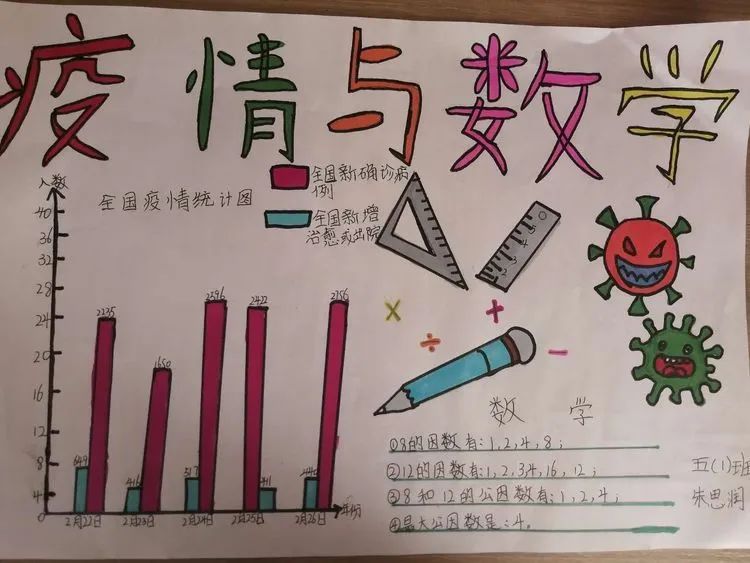 疫情与数学
人数
全国疫情统计图
全国新确诊病
例
全国新增
治愈或出院
40
36
32
28
24
20
16
12
8
4
0
649 2235 416 1650 517 2596 411 2422 440 2756
2月22日 2月23日 2月24日 2月25日 2月26日 年份
× ÷ + −
数学
①8的因数有:1,2,4,8;
②12的因数有:1,2,3,4,16,12;
③8和12的公因数有:1,2,4;
④最大公因数是:4。
五(1)班
朱思润